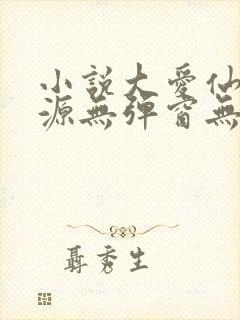 小說大愛仙
源無彈窗無
聶秀生